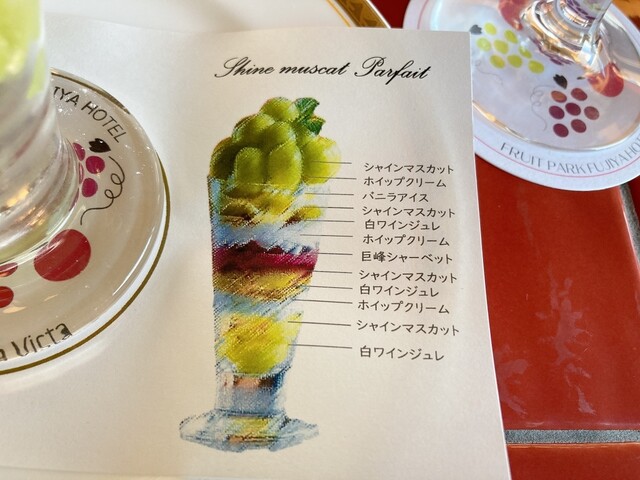 Shine muscat Parfait
シャインマスカット
ホイップクリーム
バニラアイス
シャインマスカット
白ワインジュレ
ホイップクリーム
巨峰シャーベット
シャインマスカット
白ワインジュレ
ホイップクリーム
シャインマスカット
白ワインジュレ
HOTEL
Victa
FRUIT PARK FUJIYA HO